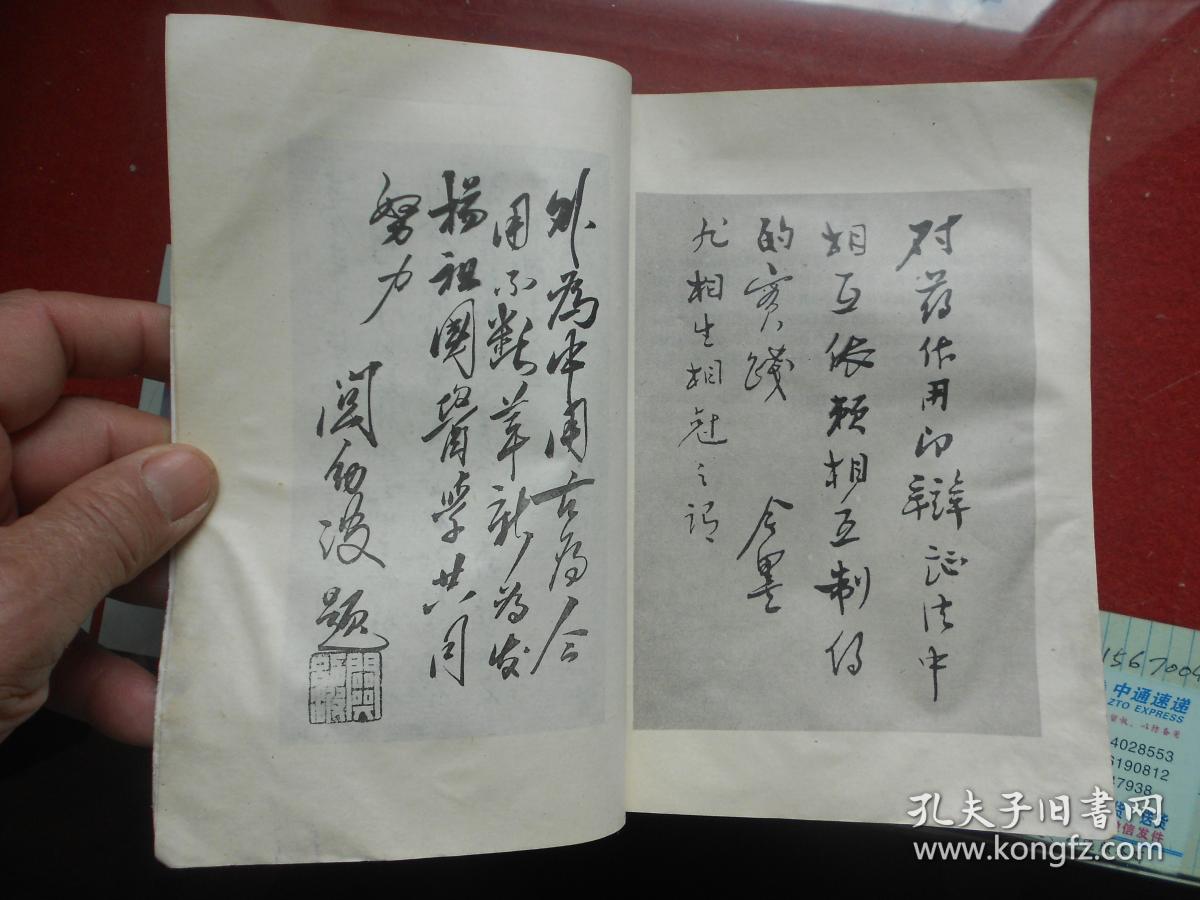 对药作用即辩证法中
相互依赖相互制约
的实践
尤相生相尅之谓
今墨
外為中用古为今
用不斷革新为发
揚祖國醫學共同
努力
関幼波题
156700
中通速递
ZTO EXPRESS
4028553
6190812
7938
孔夫子旧書网
www.kongfz.com